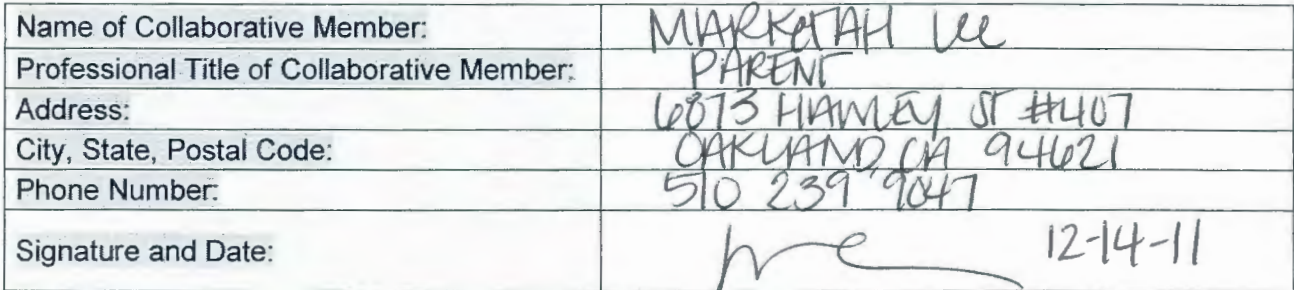 Name of Collaborative Member: MARKETAH Lee
Professional Title of Collaborative Member: PARENT
Address: 6873 HAWLEY ST #407
City, State, Postal Code: OAKLAND, CA 94621
Phone Number: 510 239 9047
Signature and Date: 12-14-11